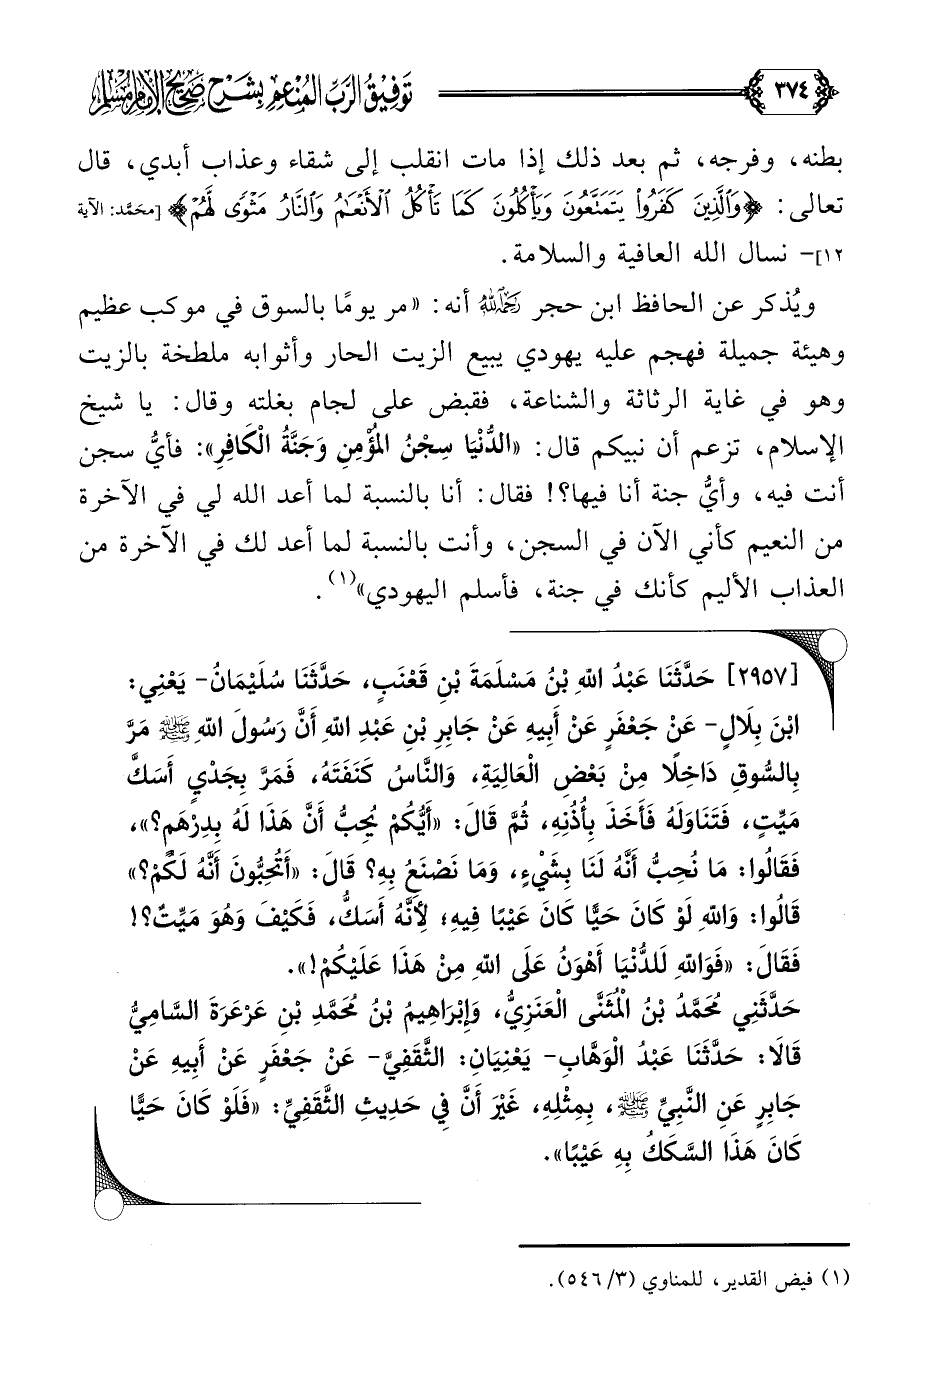 ٣٧٤ توفيق الرب المنعم بشرح صحيح الإمام مسلم
بطنه، وفرجه، ثم بعد ذلك إذا مات انقلب إلى شقاء وعذاب أبدي، قال
تعالى: ﴿وَٱلَّذِينَ كَفَرُواْ يَتَمَتَّعُونَ وَيَأۡكُلُونَ كَمَا تَأۡكُلُ ٱلۡأَنۡعَٰمُ وَٱلنَّارُ مَثۡوٗى لَّهُمۡ﴾ [محمَّد: الآية
١٢]- نسال الله العافية والسلامة.
ويُذكر عن الحافظ ابن حجر رَحِمَهُ اللَّهُ أنه: «مر يومًا بالسوق في موكب عظيم
وهيئة جميلة فهجم عليه يهودي يبيع الزيت الحار وأثوابه ملطخة بالزيت
وهو في غاية الرثاثة والشناعة، فقبض على لجام بغلته وقال: يا شيخ
الإسلام، تزعم أن نبيكم قال: «الدُّنْيَا سِجْنُ المُؤْمِنِ وَجَنَّةُ الْكَافِرِ»: فأيُّ سجن
أنت فيه، وأيُّ جنة أنا فيها؟! فقال: أنا بالنسبة لما أعد الله لي في الآخرة
من النعيم كأني الآن في السجن، وأنت بالنسبة لما أعد لك في الآخرة من
العذاب الأليم كأنك في جنة، فأسلم اليهودي»(١).
[٢٩٥٧] حَدَّثَنَا عَبْدُ اللهِ بْنُ مَسْلَمَةَ بْنِ قَعْنَبٍ، حَدَّثَنَا سُلَيْمَانُ- يَعْنِي:
ابْنَ بِلَالٍ- عَنْ جَعْفَرٍ عَنْ أَبِيهِ عَنْ جَابِرِ بْنِ عَبْدِ اللهِ أَنَّ رَسُولَ اللهِ ﷺ مَرَّ
بِالسُّوقِ دَاخِلًا مِنْ بَعْضِ الْعَالِيَةِ، وَالنَّاسُ كَنَفَتَهُ، فَمَرَّ بِجَدْيٍ أَسَكَّ
مَيِّتٍ، فَتَنَاوَلَهُ فَأَخَذَ بِأُذُنِهِ، ثُمَّ قَالَ: «أَيُّكُمْ يُحِبُّ أَنَّ هَذَا لَهُ بِدِرْهَمٍ؟»،
فَقَالُوا: مَا نُحِبُّ أَنَّهُ لَنَا بِشَيْءٍ، وَمَا نَصْنَعُ بِهِ؟ قَالَ: «أَتُحِبُّونَ أَنَّهُ لَكُمْ؟»
قَالُوا: وَاللهِ لَوْ كَانَ حَيًّا كَانَ عَيْبًا فِيهِ؛ لِأَنَّهُ أَسَكُّ، فَكَيْفَ وَهُوَ مَيِّتٌ؟!
فَقَالَ: «فَوَاللهِ لَلدُّنْيَا أَهْوَنُ عَلَى اللهِ مِنْ هَذَا عَلَيْكُمْ!».
حَدَّثَنِي مُحَمَّدُ بْنُ الْمُثَنَّى الْعَنَزِيُّ، وَإِبْرَاهِيمُ بْنُ مُحَمَّدِ بْنِ عَرْعَرَةَ السَّامِيُّ
قَالَا: حَدَّثَنَا عَبْدُ الْوَهَّابِ- يَعْنِيَانِ: الثَّقَفِيَّ- عَنْ جَعْفَرٍ عَنْ أَبِيهِ عَنْ
جَابِرٍ عَنِ النَّبِيِّ ﷺ، بِمِثْلِهِ، غَيْرَ أَنَّ فِي حَدِيثِ الثَّقَفِيِّ: «فَلَوْ كَانَ حَيًّا
كَانَ هَذَا السَّكَكُ بِهِ عَيْبًا».
(١) فيض القدير، للمناوي (٣/ ٥٤٦).